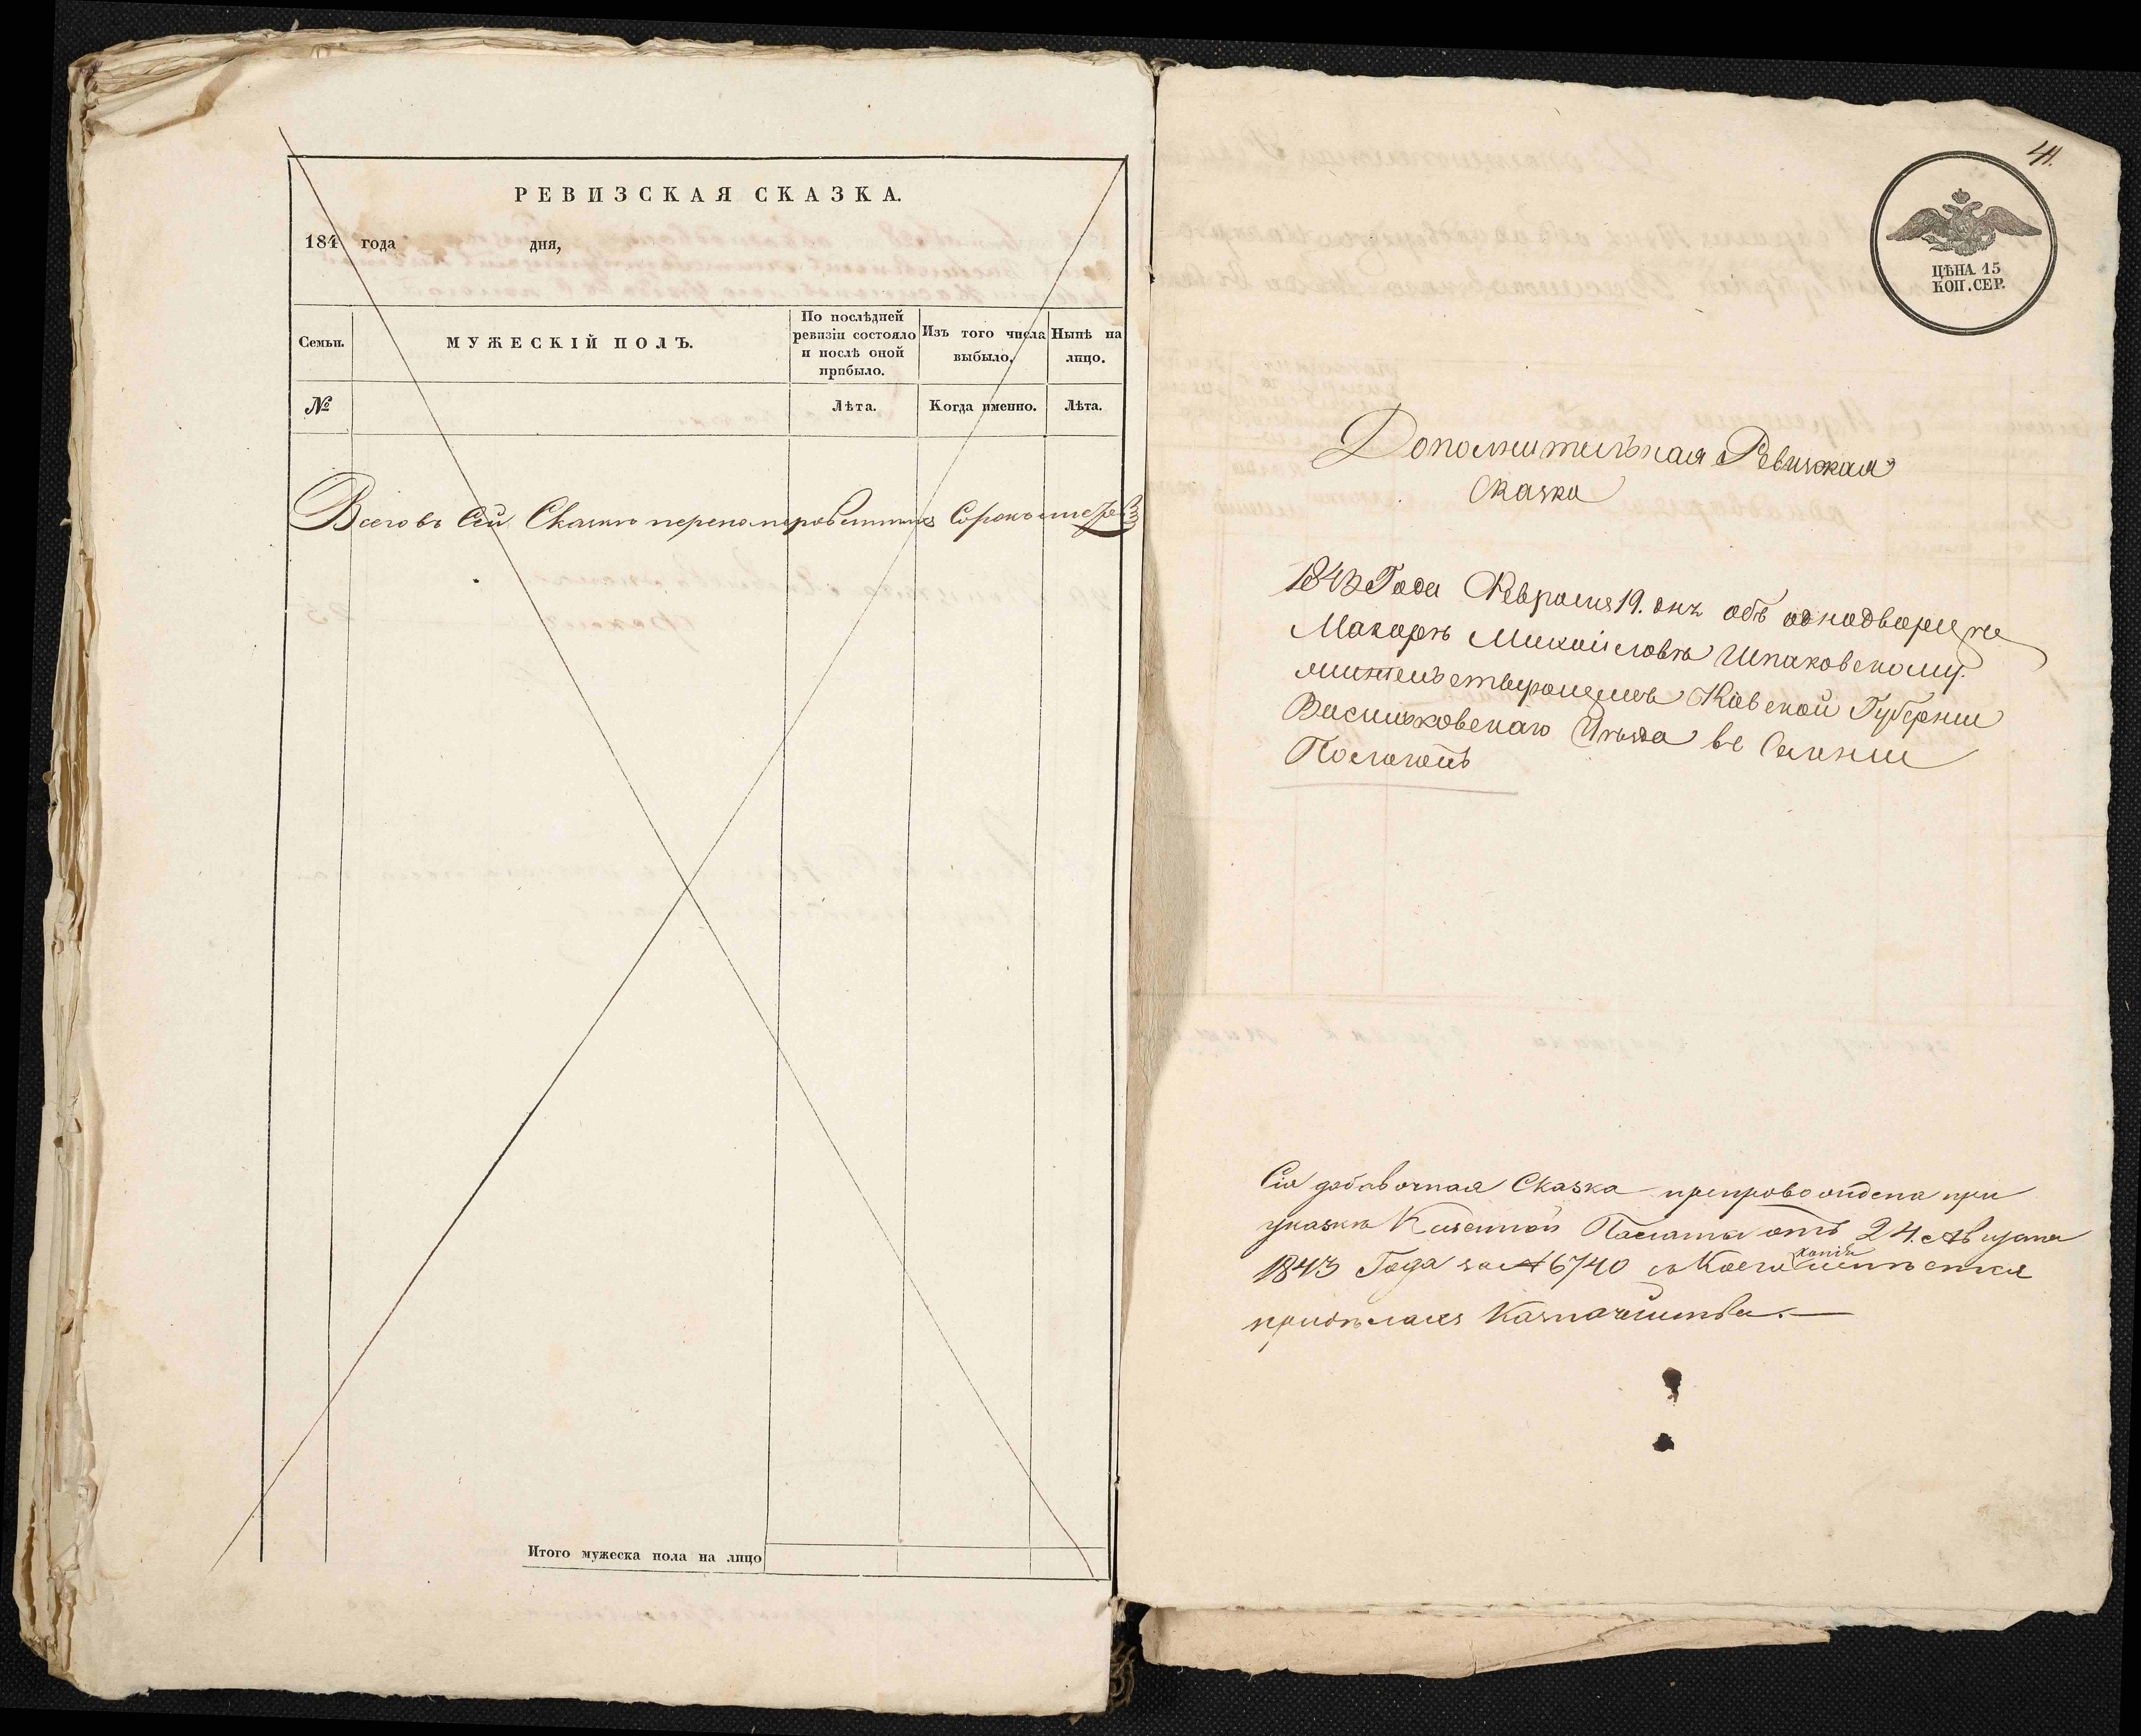 РЕВИЗСКАЯ СКАЗКА.
184 года дня,
Семьи.
МУЖЕСКІЙ ПОЛЪ.
По послѣдней
ревизіи состояло
и послѣ оной
прибыло.
Изъ того числа
выбыло,
Нынѣ на
лицо.
№
Лѣта.
Когда именно.
Лѣта.
Всего въ Сей Сказки переномерованныхъ Сорокъ
Итого мужеска пола на лицо
41.
ЦѢНА 15
КОП. СЕР.
Дополнительная Ревизкая
Сказка
1843 Года Февраля 19. дня объ однодворце
Макарѣ Михайловѣ Шпаковскому.
Кіевской Губерніи
Васильковскаго Уѣзда въ Селении
Пологахъ
Сія добавочная Сказка препровождена при
указѣ Казенной Палаты отъ 24. Августа
1843 Года за № 6740 съ Коего копія имѣется
при дѣлахъ Казначейства.